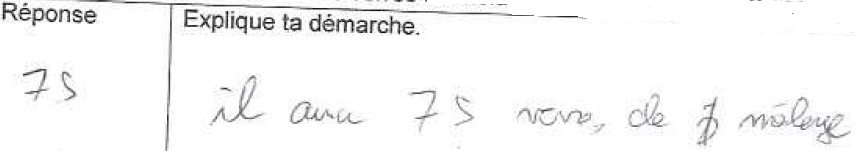 Réponse
Explique ta démarche.
75
il aura 75 verre, de mélange